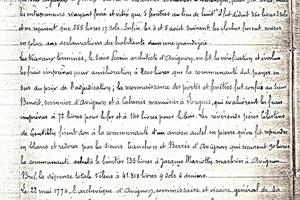 les entrepreneurs n'ayant foré et vitré que 5 fenêtres au lieu de huit. Il fut déduit 120 livres 5 sols
et ne reçurent que 555 livres 17 sols. Enfin les 2 et 3 août suivant les cloches furent mises
en place aux acclamations des habitants dans une grande joie.
Les travaux terminés, le Sieur architecte d'Avignon, en fit la vérification et évalua
les frais imprévus pour amélioration à 2000 livres que la communauté dut payer en
sus du prix de l'adjudication; la reconnaissance des portes et fenêtres fut confiée au Sieur
Benoit, serrurier d'Avignon et à Labaume menuisier à Sorgues, qui évaluèrent les frais
imprévus à 72 livres pour le fer et à 140 livres pour le bois. Les révérends pères Célestins
de Gentilly firent don à la communauté d'un ancien autel en pierre qu'on fit repeindre
en blanc et redorer par les sieurs et Bernier d'Avignon qui reçurent 90 livres
la communauté acheta le bénitier 135 livres à Jacques Mariotty marbrier à Avignon
Bref, la dépense totale s'éleva à 41.318 livres 9 sols 6 deniers.
Le 22 mai 1774, l'archevêque d'Avignon, commissaire et vicaire général de la